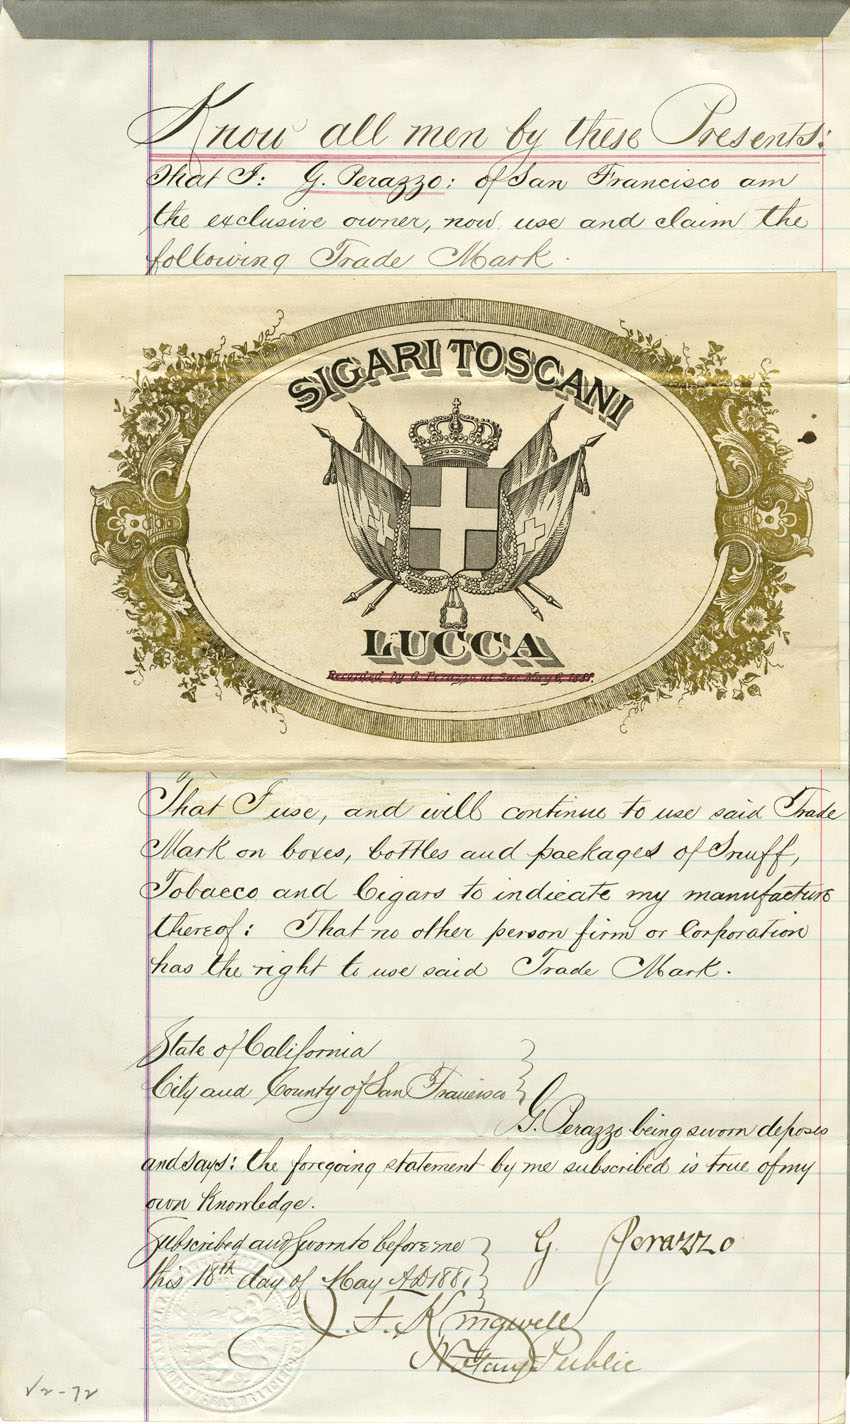 Know all men by these Presents:
That I: G. Perazzo; of San Francisco am
the exclusive owner, now use and claim the
following Trade Mark.
SIGARI TOSCANI
LUCCA
Recorded by G Perazzo at Sac. May 6, 1881.
That I use, and will continue to use said Trade
Mark on boxes, bottles and packages of Snuff,
Tobacco and Cigars to indicate my manufacture
thereof: That no other person firm or Corporation
has the right to use said Trade Mark.
State of California
City and County of San Francisco
G. Perazzo being sworn deposes
and says: the foregoing statement by me subscribed is true of my
own Knowledge.
Subscribed and Sworn to before me
this 18th day of May A.D 1881
G. Perazzo
J. F. Kingwell
Notary Public